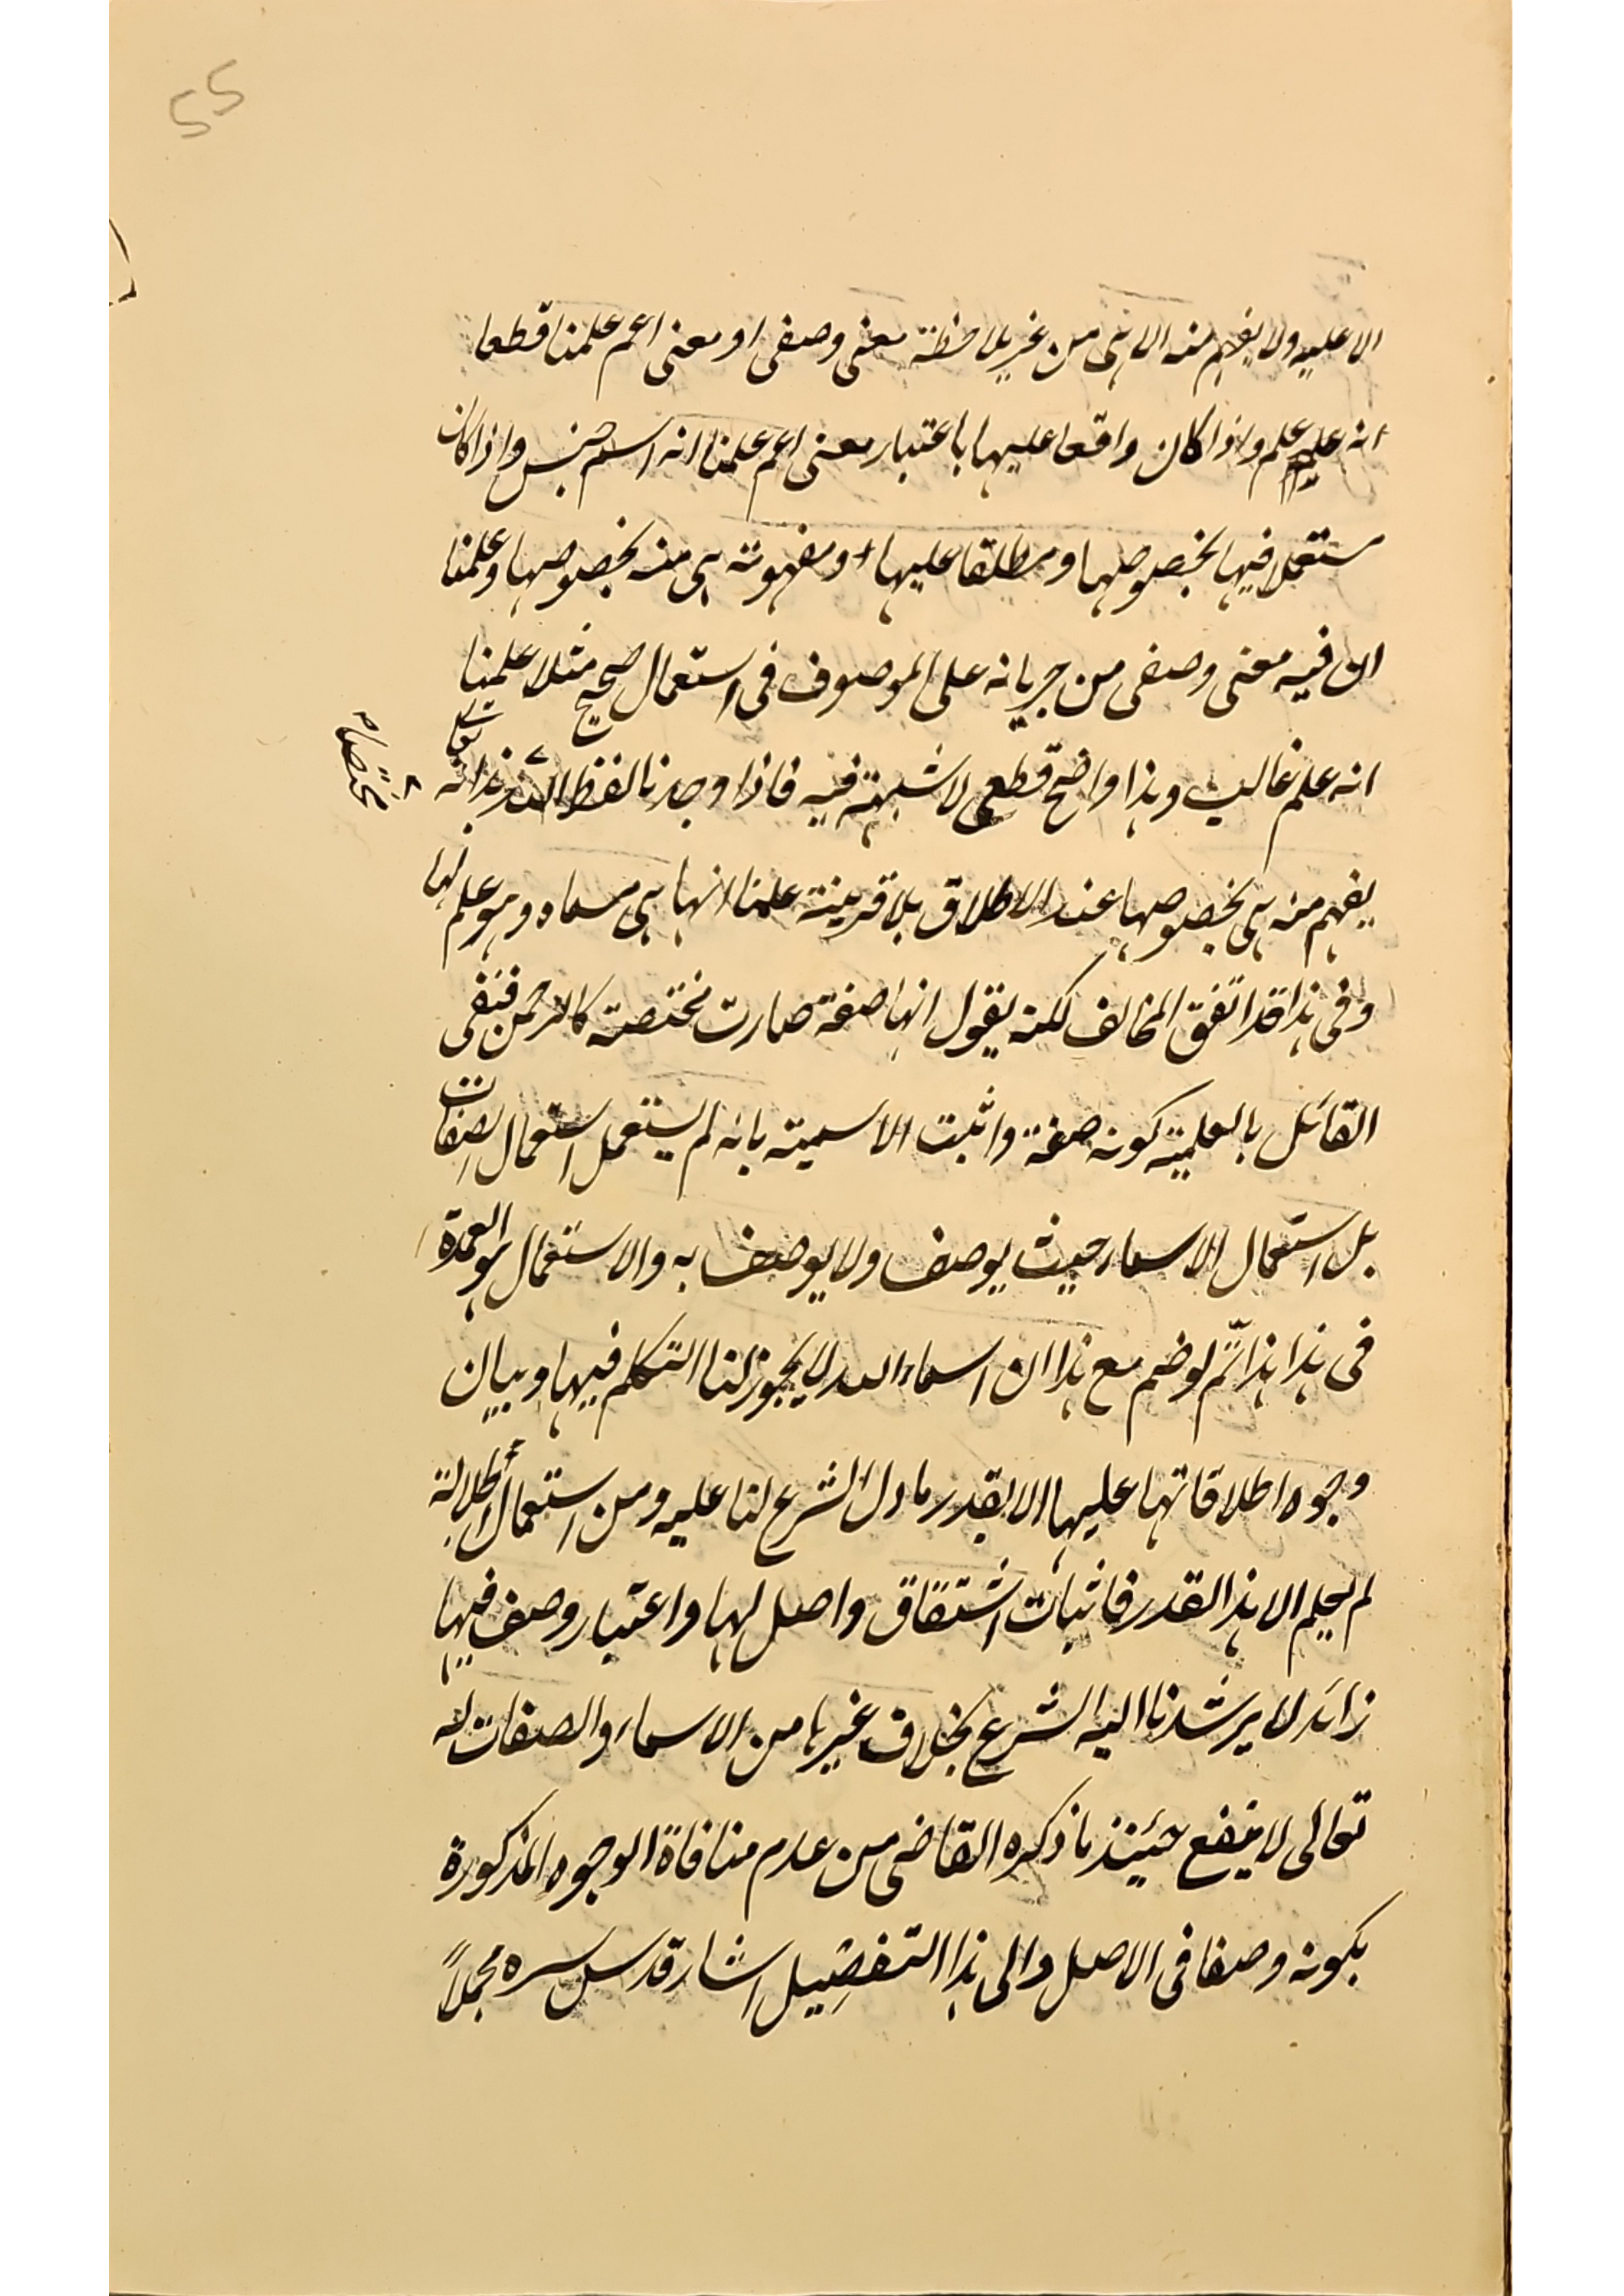 55
الا عليه ولا يفهم منه الا هى من غير ملاحظة معنى وصفى او معنى اعم علمنا قطعا
انه علم واذا كان واقعا عليها باعتبار معنى اعم علمنا انه اسم جنس واذا كان
مستعملا فيها بخصوصها ومطلقا عليها ومفهومة هى منه بخصوصها وعلمنا
ان فيه معنى وصفى من جريانه على الموصوف فى استعمال صحيح مثلا علمنا
انه علم غالب وهذا واضح قطعى لا شبهة فيه فاذا وجدنا لفظ الله بذاته تعالى
مختصا
يفهم منه هى بخصوصها عند الاطلاق بلا قرينة علمنا انها هى مسماه وهو علم لها
وفى هذا قد اتفق المخالف لكنه يقول انها صفة صارت مختصة كالرحمن فنفى
القائل بالعلمية كونه صفة واثبت الاسمية بانه لم يستعمل استعمال الصفات
بل استعمال الاسماء حيث يوصف ولا يوصف به والاستعمال هو العمدة
فى هذا هذا ثم لو ضم مع هذا ان اسماء الله لا يجوز لنا التكلم فيها وبيان
وجوه اطلاقاتها عليها الا بقدر ما دل الشرع لنا عليه ومن استعمال
لم يعلم الا هذا القدر فاثبات اشتقاق واصل لها واعتبار وصف فيها
زائد لا يرشدنا اليه الشرع بخلاف غيرها من الاسماء والصفات له
تعالى لا ينفع حينئذ ما ذكره القاضى من عدم منافاة الوجوه المذكورة
بكونه وصفا فى الاصل والى هذا التفصيل اشار قدس سره مجملاً